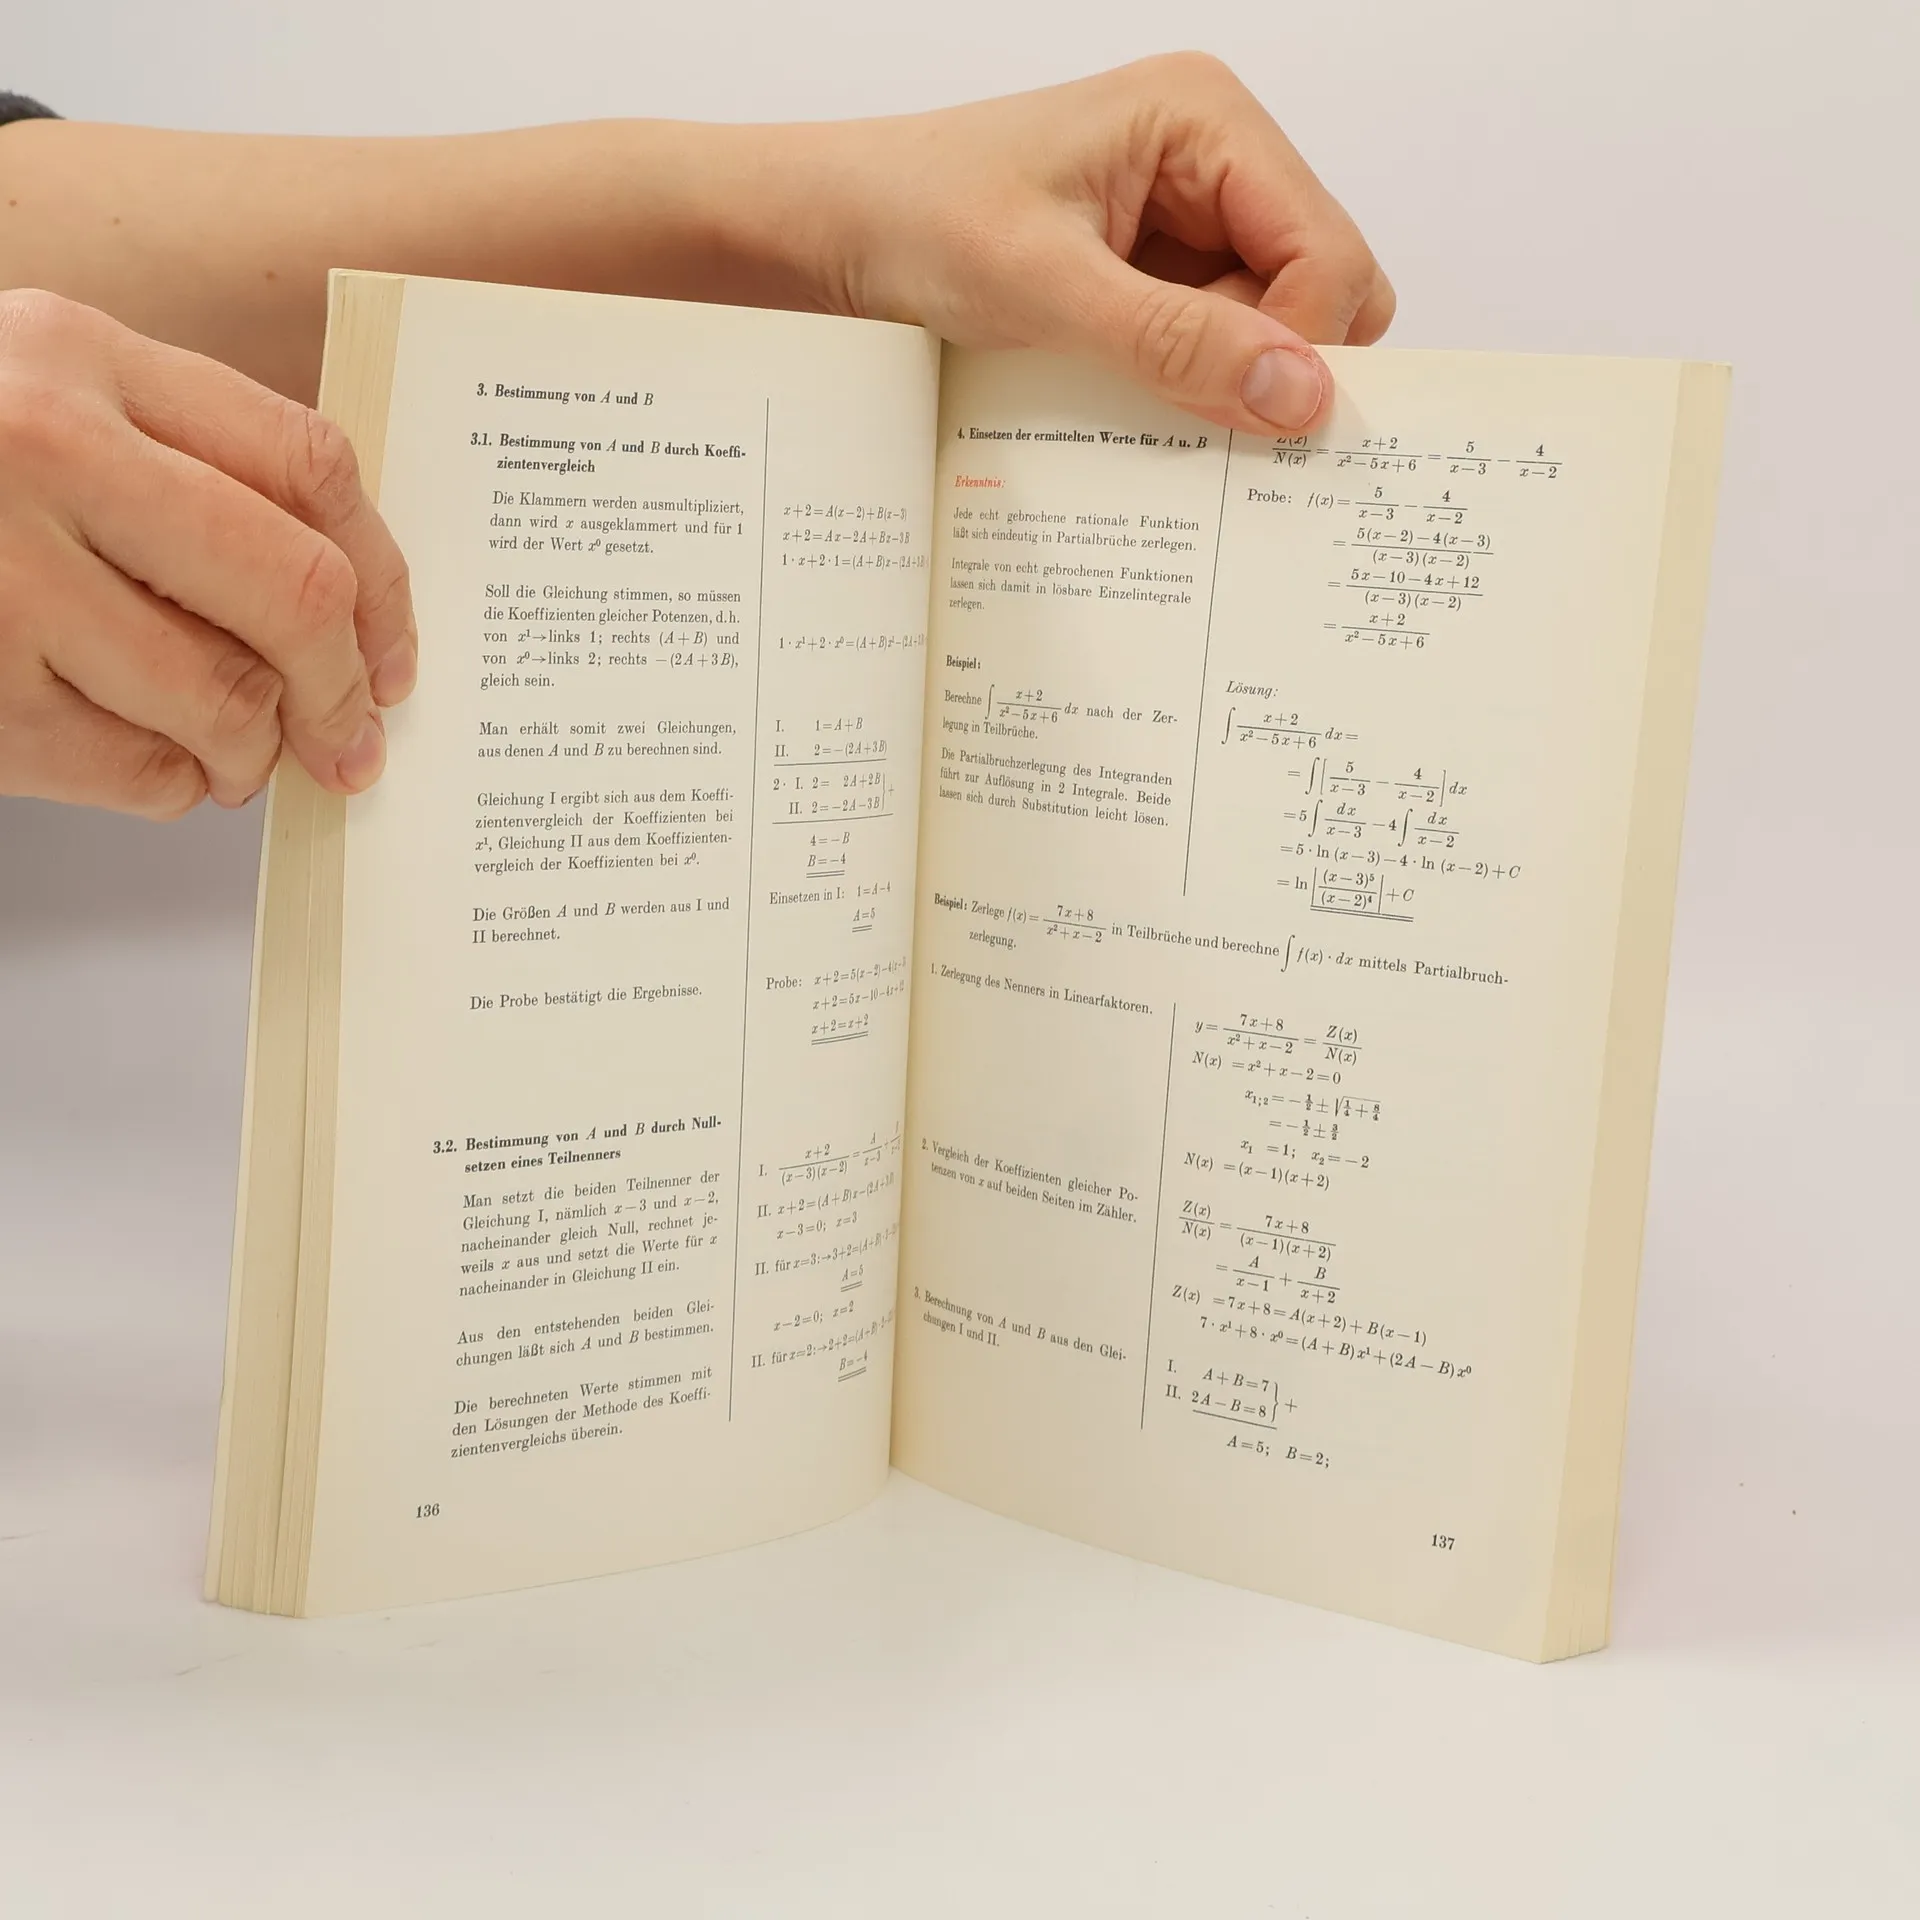 3. Bestimmung von A und B
3.1. Bestimmung von A und B durch Koeffi-
zientenvergleich
Die Klammern werden ausmultipliziert,
dann wird x ausgeklammert und für 1
wird der Wert x⁰ gesetzt.
Soll die Gleichung stimmen, so müssen
die Koeffizienten gleicher Potenzen, d.h.
von x¹→links 1; rechts (A+B) und
von x⁰→links 2; rechts −(2A+3B),
gleich sein.
Man erhält somit zwei Gleichungen,
aus denen A und B zu berechnen sind.
Gleichung I ergibt sich aus dem Koeffi-
zientenvergleich der Koeffizienten bei
x¹, Gleichung II aus dem Koeffizienten-
vergleich der Koeffizienten bei x⁰.
Die Größen A und B werden aus I und
II berechnet.
Die Probe bestätigt die Ergebnisse.
x+2=A(x−2)+B(x−3)
x+2=Ax−2A+Bx−3B
1·x+2·1=(A+B)x−(2A+3B)
1·x¹+2·x⁰=(A+B)x¹−(2A+3B)
I. 1=A+B
II. 2=−(2A+3B)
2· I. 2= 2A+2B
II. 2=−2A−3B +
4=−B
B=−4
Einsetzen in I: 1=A−4
A=5
Probe: x+2=5(x−2)−4(x−3)
x+2=5x−10−4x+12
x+2=x+2
3.2. Bestimmung von A und B durch Null-
setzen eines Teilnenners
Man setzt die beiden Teilnenner der
Gleichung I, nämlich x−3 und x−2,
nacheinander gleich Null, rechnet je-
weils x aus und setzt die Werte für x
nacheinander in Gleichung II ein.
Aus den entstehenden beiden Glei-
chungen läßt sich A und B bestimmen.
Die berechneten Werte stimmen mit
den Lösungen der Methode des Koeffi-
zientenvergleichs überein.
I. (x+2)/((x−3)(x−2)) = A/(x−3) +
II. x+2=(A+B)x−(2A+3B)
x−3=0; x=3
II. für x=3:→3+2=(A+B)·3−
A=5
x−2=0; x=2
II. für x=2:→2+2=(A+B)·2−
B=−4
136
4. Einsetzen der ermittelten Werte für A u. B
Erkenntnis:
Jede echt gebrochene rationale Funktion
läßt sich eindeutig in Partialbrüche zerlegen.
Integrale von echt gebrochenen Funktionen
lassen sich damit in lösbare Einzelintegrale
zerlegen.
Beispiel:
Berechne ∫ (x+2)/(x²−5x+6) dx nach der Zer-
legung in Teilbrüche.
Die Partialbruchzerlegung des Integranden
führt zur Auflösung in 2 Integrale. Beide
lassen sich durch Substitution leicht lösen.
Z(x)/N(x) = (x+2)/(x²−5x+6) = 5/(x−3) − 4/(x−2)
Probe: f(x) = 5/(x−3) − 4/(x−2)
= (5(x−2)−4(x−3))/((x−3)(x−2))
= (5x−10−4x+12)/((x−3)(x−2))
= (x+2)/(x²−5x+6)
Lösung:
∫ (x+2)/(x²−5x+6) dx=
= ∫ [5/(x−3) − 4/(x−2)] dx
=5 ∫ dx/(x−3) −4 ∫ dx/(x−2)
=5·ln (x−3)−4·ln (x−2)+C
= ln |(x−3)⁵/(x−2)⁴| +C
Beispiel: Zerlege f(x)= (7x+8)/(x²+x−2) in Teilbrüche und berechne ∫ f(x)·dx mittels Partialbruch-
zerlegung.
1. Zerlegung des Nenners in Linearfaktoren.
y= (7x+8)/(x²+x−2) = Z(x)/N(x)
N(x) =x²+x−2=0
x₁;₂=−½±√(¼+8/4)
=−½±3/2
x₁ =1; x₂=−2
N(x) =(x−1)(x+2)
2. Vergleich der Koeffizienten gleicher Po-
tenzen von x auf beiden Seiten im Zähler.
Z(x)/N(x) = (7x+8)/((x−1)(x+2))
= A/(x−1) + B/(x+2)
Z(x) =7x+8=A(x+2)+B(x−1)
7·x¹+8·x⁰=(A+B)x¹+(2A−B)x⁰
3. Berechnung von A und B aus den Glei-
chungen I und II.
I. A+B=7
II. 2A−B=8 } +
A=5; B=2;
137